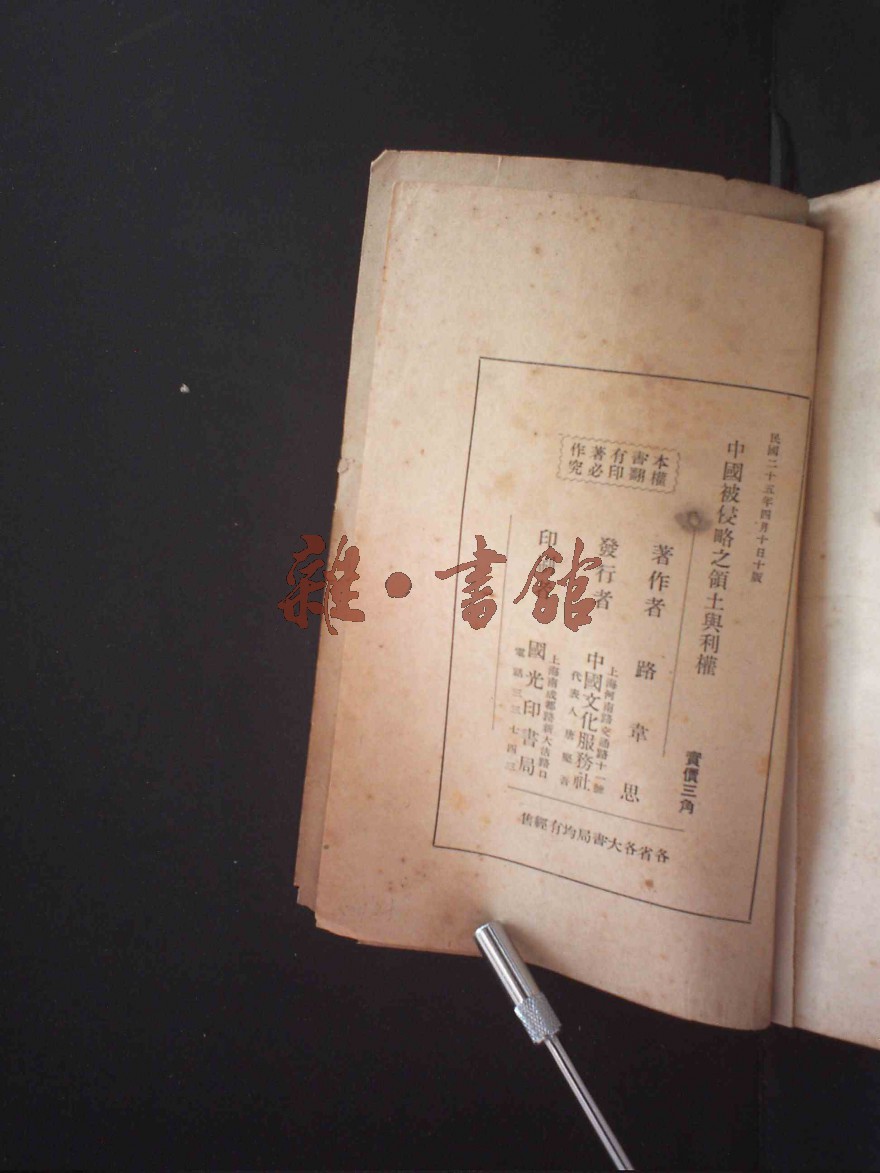 民國二十五年四月十日十版
中國被侵略之領土與利權
實價三角
本書有著作
權翻印必究
著作者 路韋思
發行者
上海河南路交通路十一號
中國文化服務社
代表人 唐堅吾
印
上海南成都路新大沽路口
國光印書局
電話三三七四三
各省各大書局均有經售
雜·書館